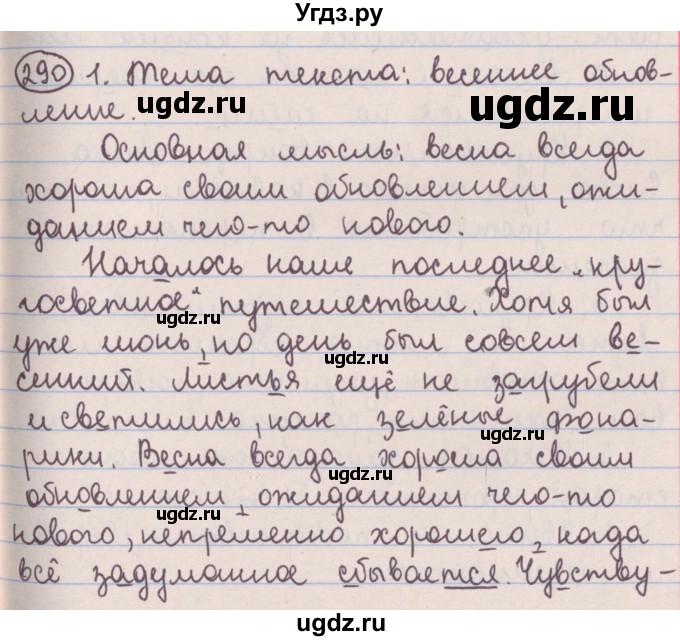 Угdз.ру
290 1. Тема текста: весеннее обнов-
ление.
Основная мысль: весна всегда
хороша своим обновлением, ожи-
данием чего-то нового.
Началось наше последнее „кру-
госветное" путешествие. Хотя был
уже июнь, но день был совсем ве-
сенний. Листья ещё не загрубели
и светились, как зелёные фона-
рики. Весна всегда хороша своим
обновлением, ожиданием чего-то
нового, непременно хорошего, когда
всё задуманное сбывается. Чувству-
ugdz.ru
ugdz.ru
ugdz.ru
ugdz.ru
ugdz.ru
ugdz.ru
ugdz.ru
ugdz.ru
ugdz.ru
ugdz.ru
ugdz.ru